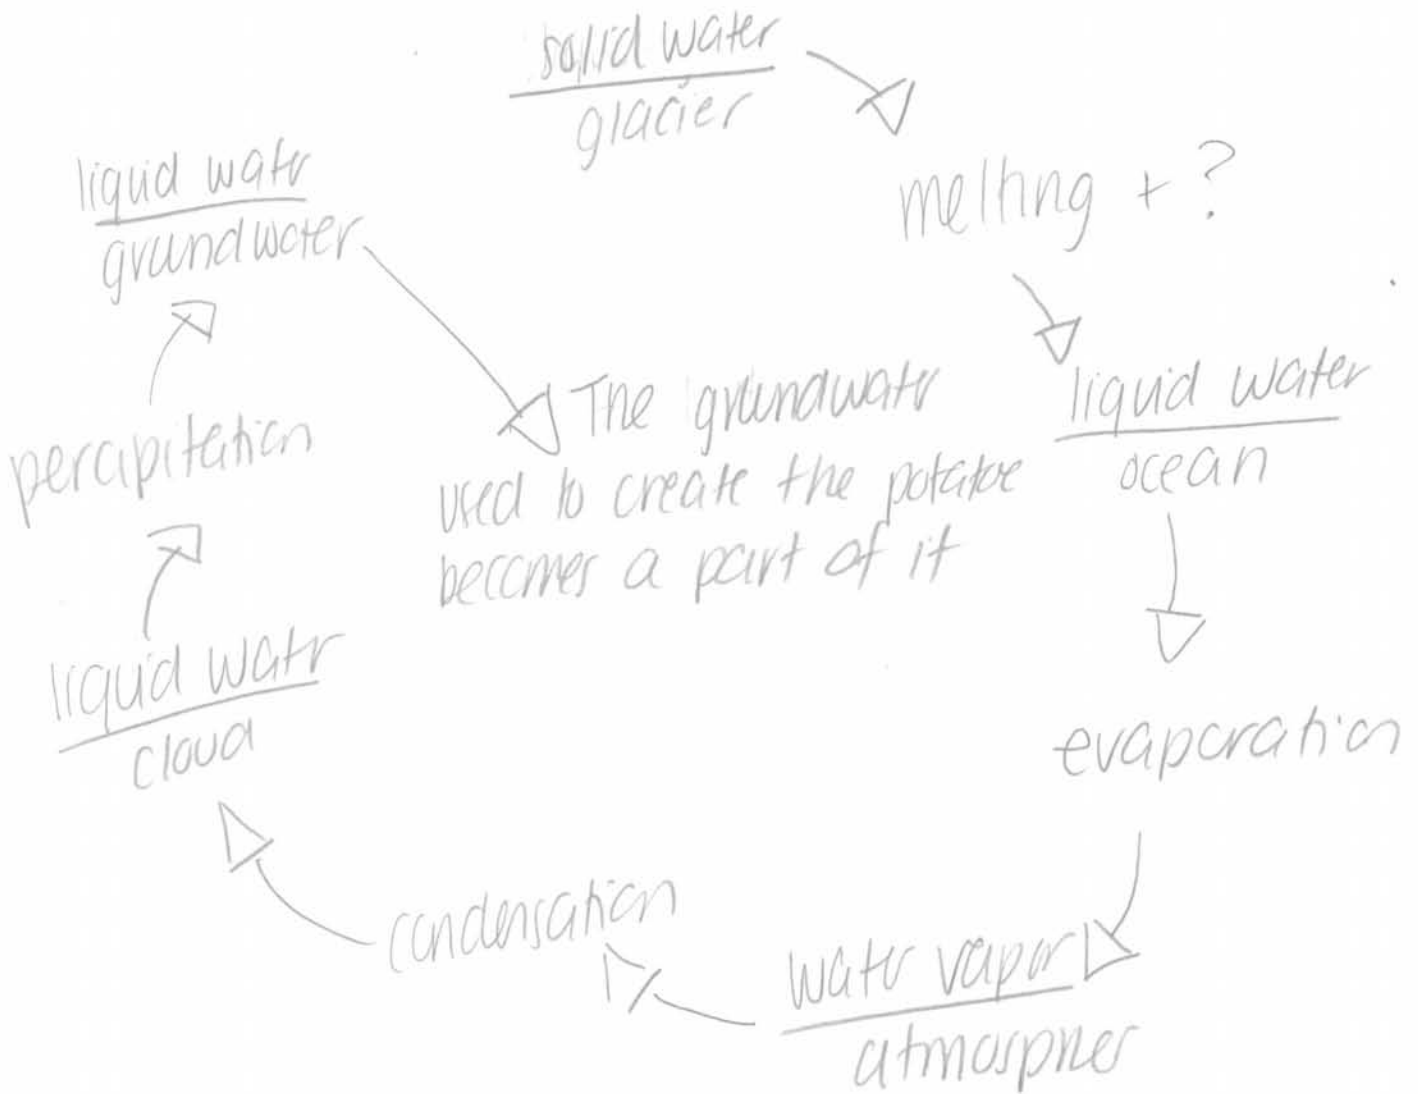 solid water
glacier
melting + ?
liquid water
ocean
evaporation
water vapor
atmospher
condensation
liquid watr
cloud
percipitation
liquid watr
groundwater
The groundwatr
used to create the potatoe
becomes a part of it